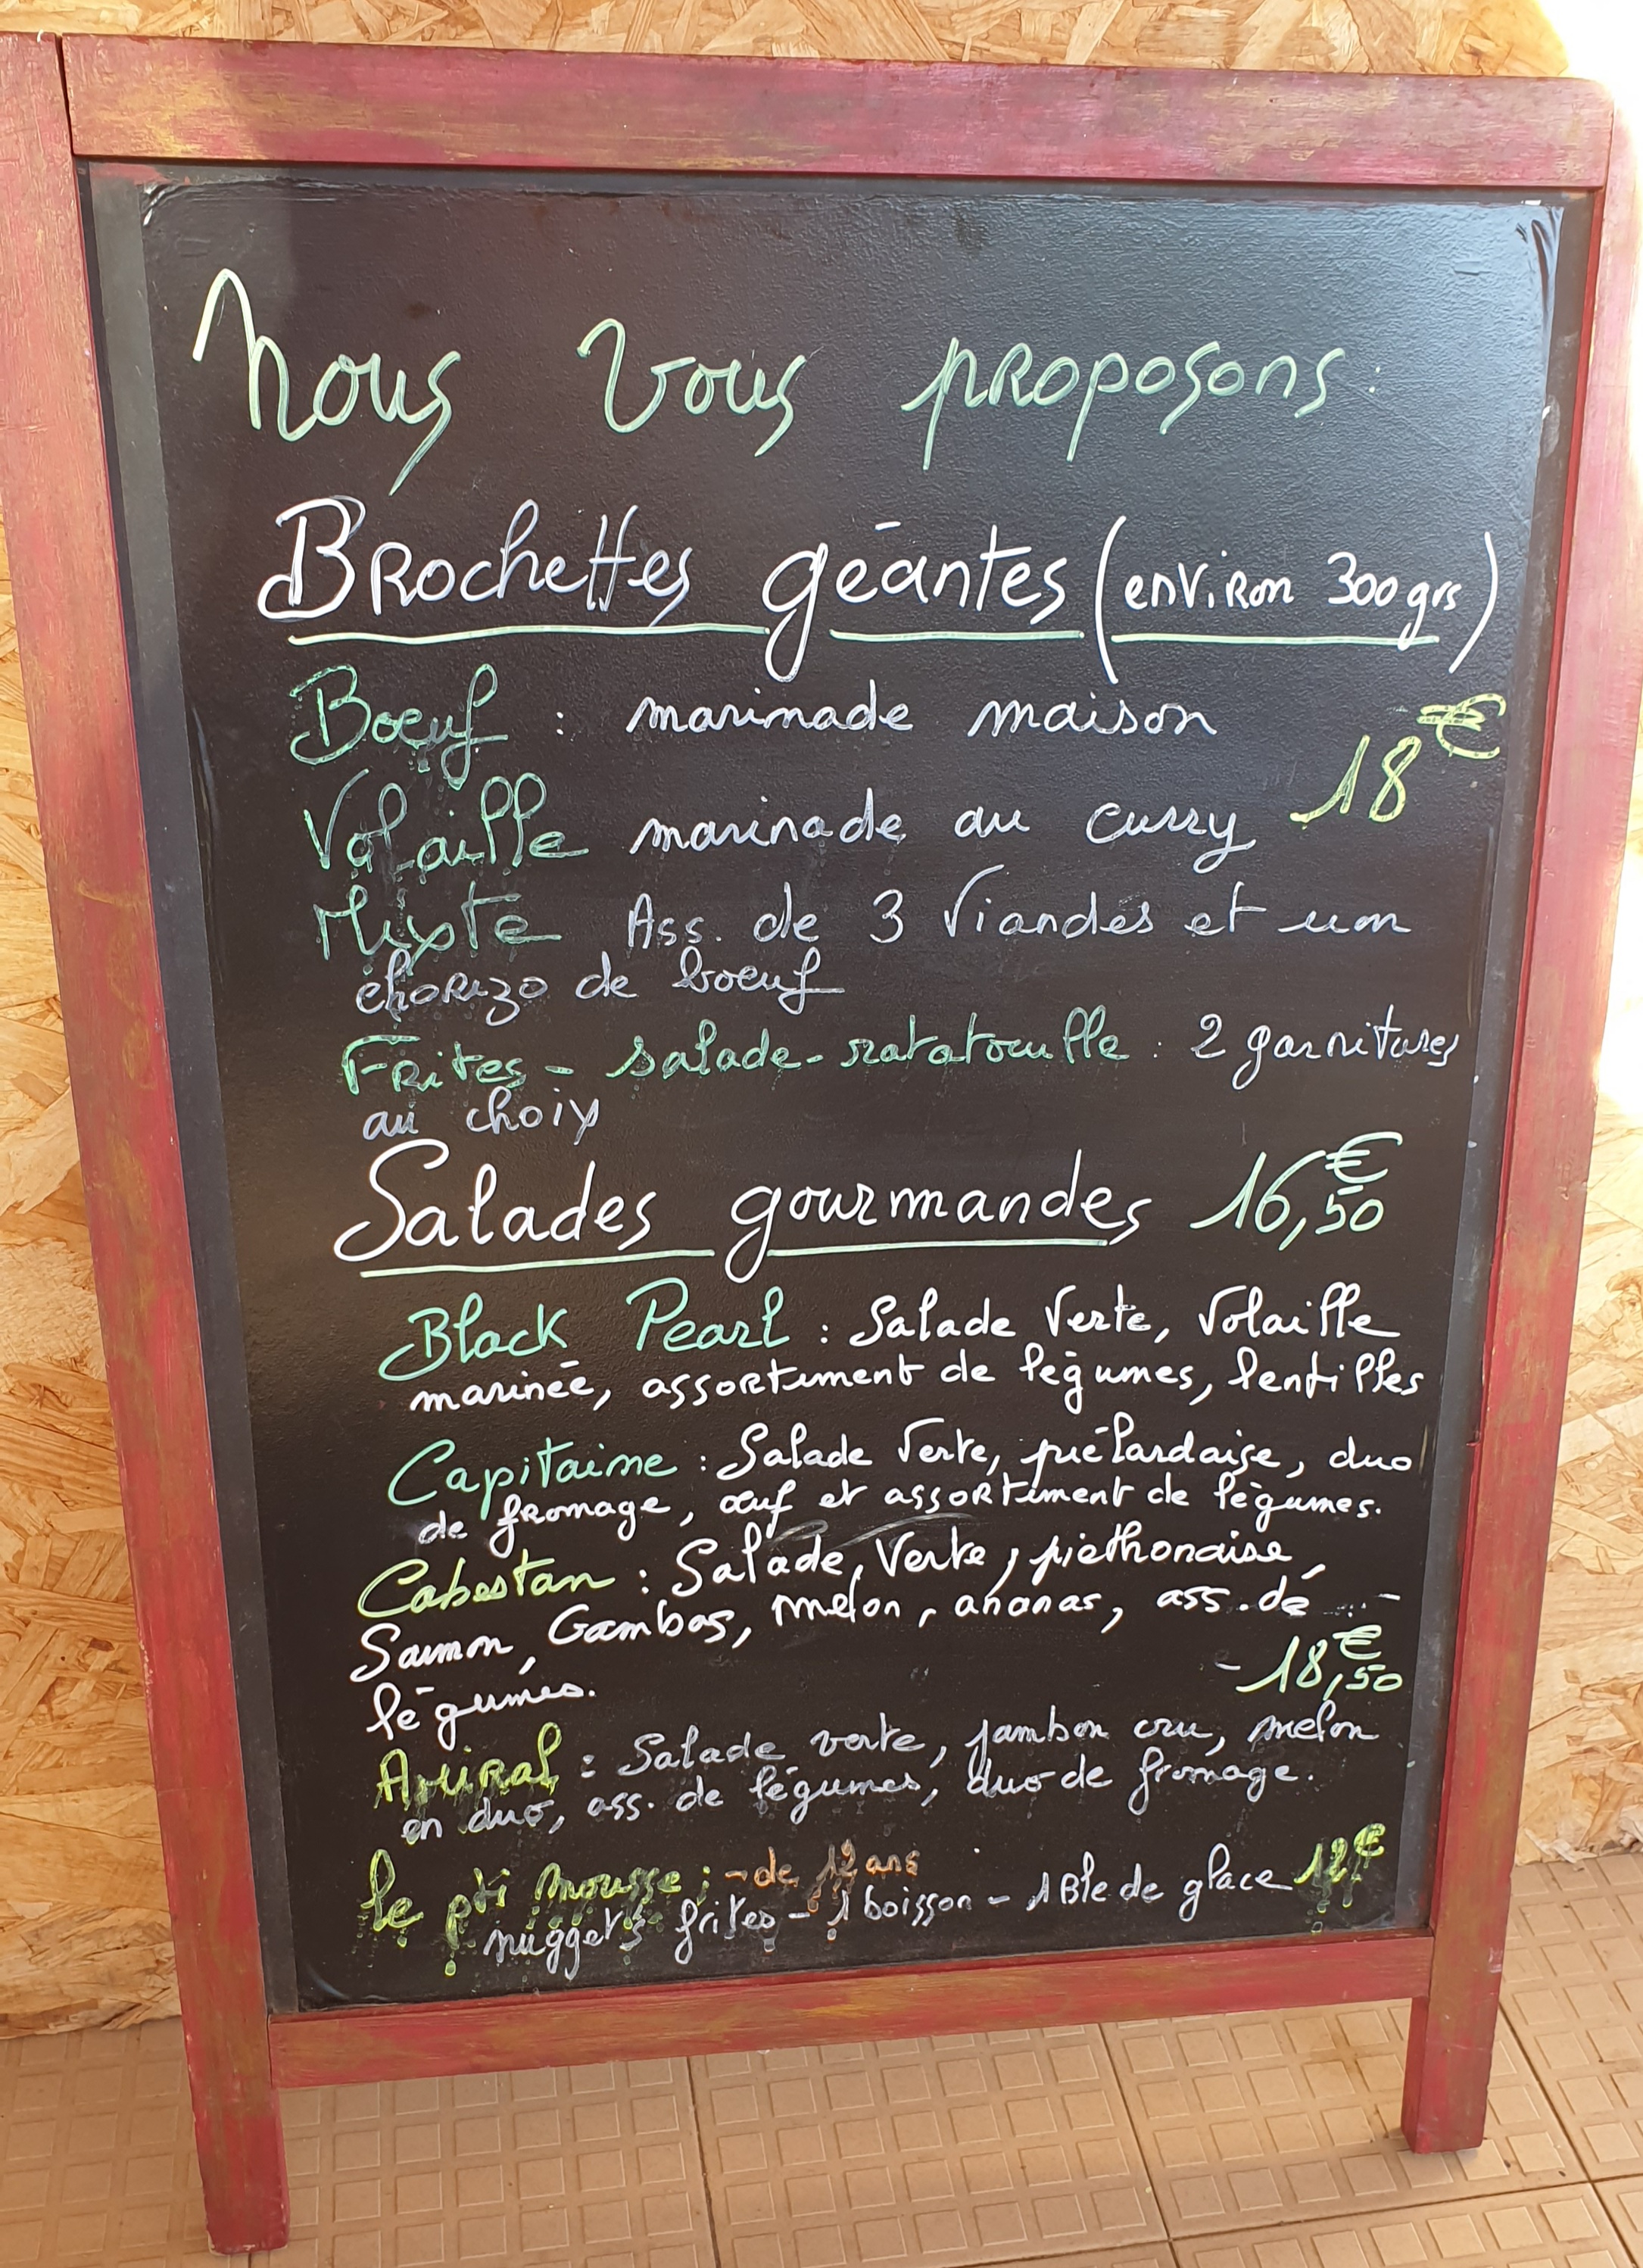 Nous vous proposons :
Brochettes géantes (environ 300grs)
Boeuf : marinade maison
18€
Volaille marinade au curry
Mixte Ass. de 3 Viandes et un
chorizo de boeuf
Frites - salade - ratatouille : 2 garnitures
au choix
Salades gourmandes 16,50€
Black Pearl : Salade Verte, Volaille
marinée, assortiment de légumes, lentilles
Capitaine : Salade Verte, piélardaise, duo
de fromage, œuf et assortiment de légumes.
Cabestan : Salade Verte, piéthonaise,
Saumon, Gambas, melon, ananas, ass. de ...-
légumes.
- 18,50€
Amiral : Salade verte, jambon cru, melon
en duo, ass. de légumes, duo de fromage.
le pti mousse : - de 12 ans
nuggets frites - 1 boisson - 1 Ble de glace 12€